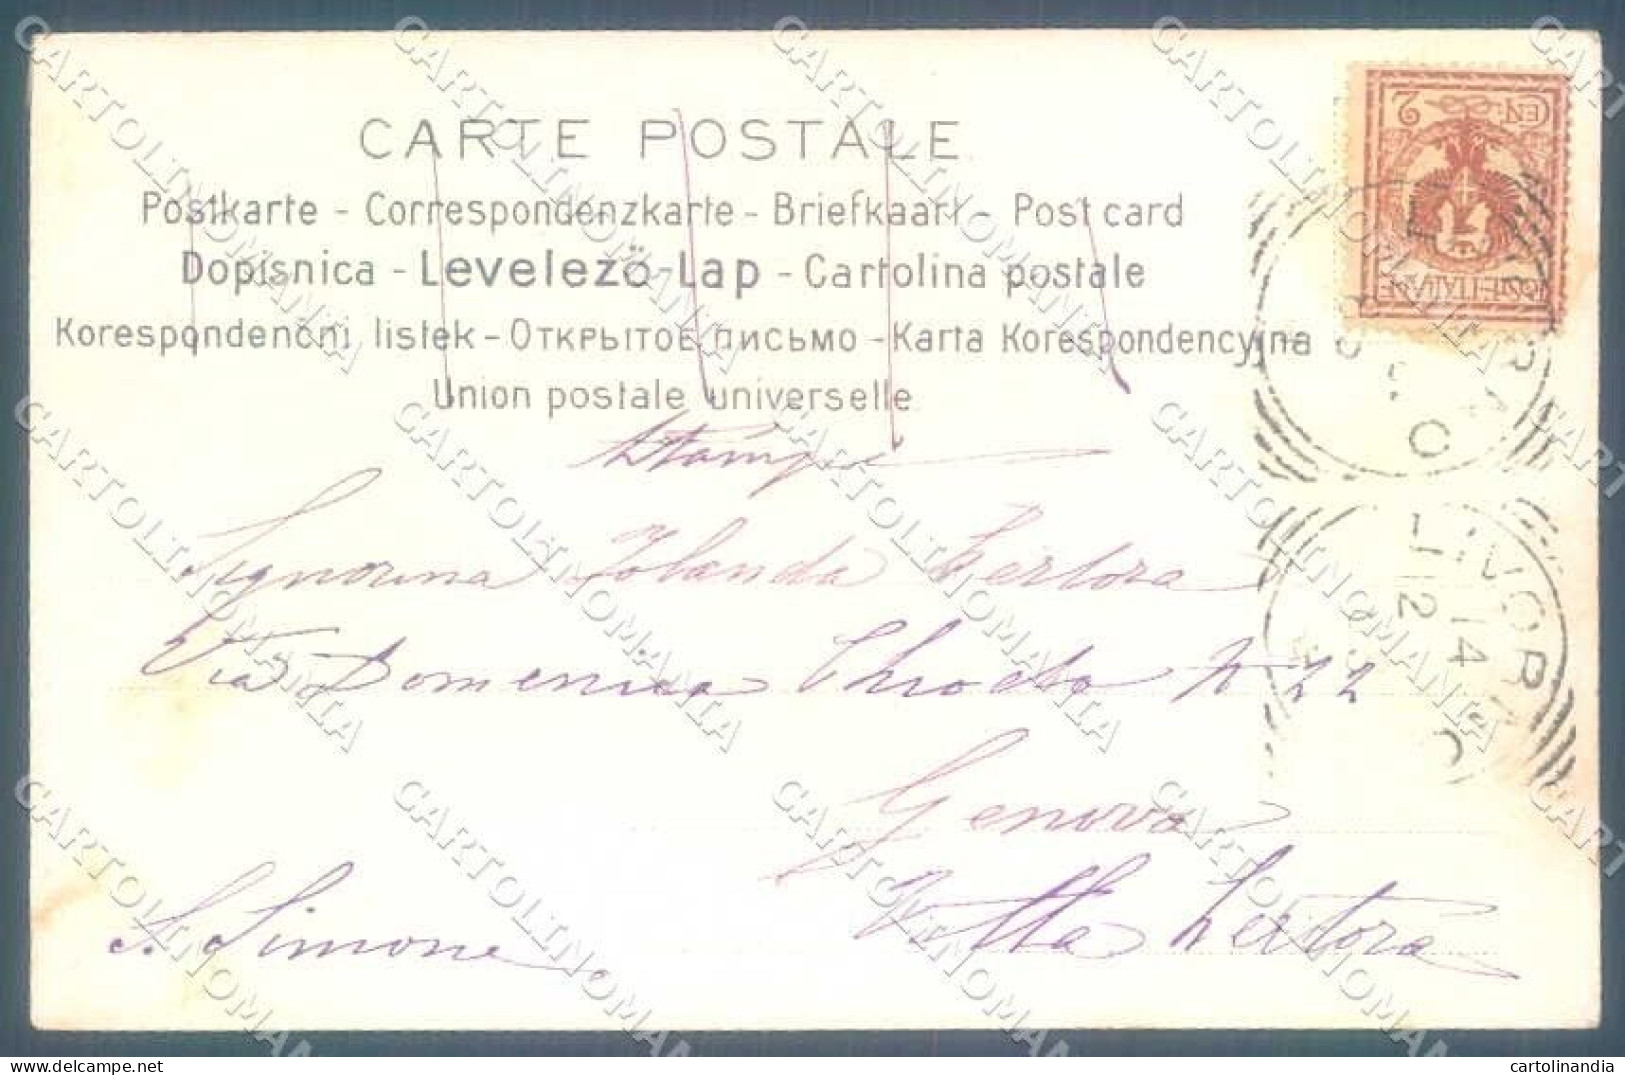 CARTE POSTALE
Postkarte - Correspondenzkarte - Briefkaart - Post card
Dopisnica - Levelező-Lap - Cartolina postale
Korespondenční lístek - Открытое письмо - Karta Korespondencyjna
Union postale universelle
CEN. 2
POSTE ITALIANE
LIVORNO
LIVORNO
14
12
Stampe
Signorina Iolanda Lertora
Via Domenico Chiodo N 22
Genova
Villa Lertora
S. Simone
CARTOLINOMANIA
cartolinandia